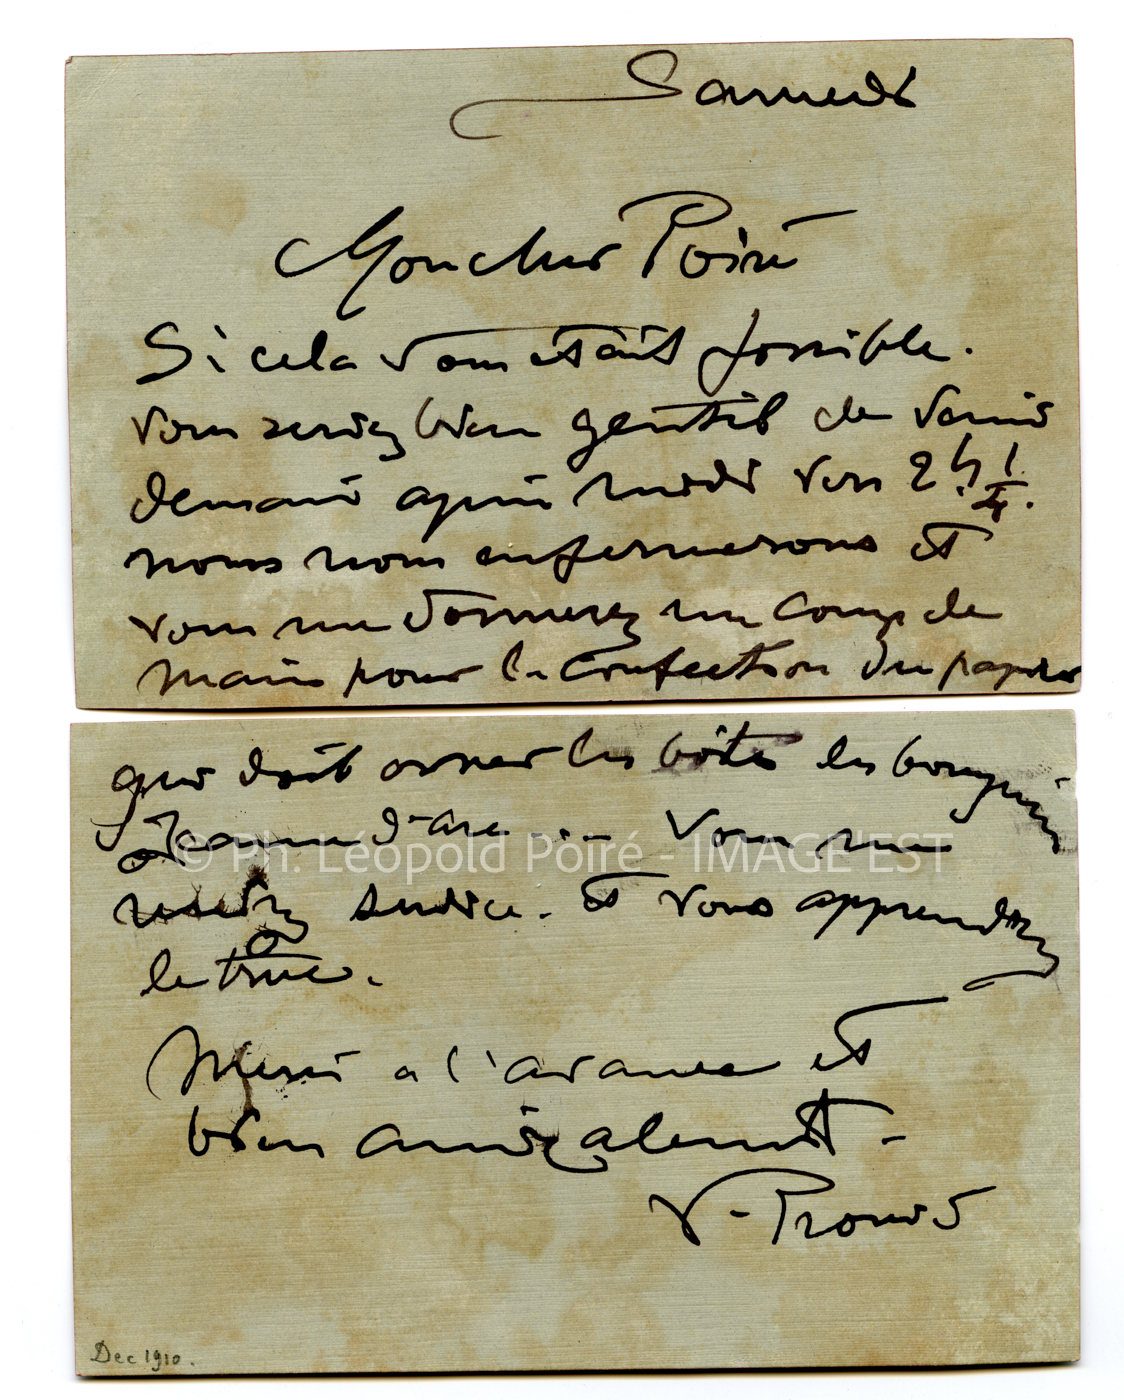 Samedi
Mon cher Poiré
Si cela vous était possible.
vous seriez bien gentil de venir
demain après midi vers 2 h. 1/4.
nous nous enfermerons et
vous me donnerez un coup de
main pour la confection du papier
qui doit orner les boîtes les bougies
Jeanne d'arc... Vous me
rendrez service. et vous apprendrez
le truc.
Merci a l'avance et
bien amicalement -
V. Prouvé
Dec 1910.
© Ph. Léopold Poiré - IMAGE'EST